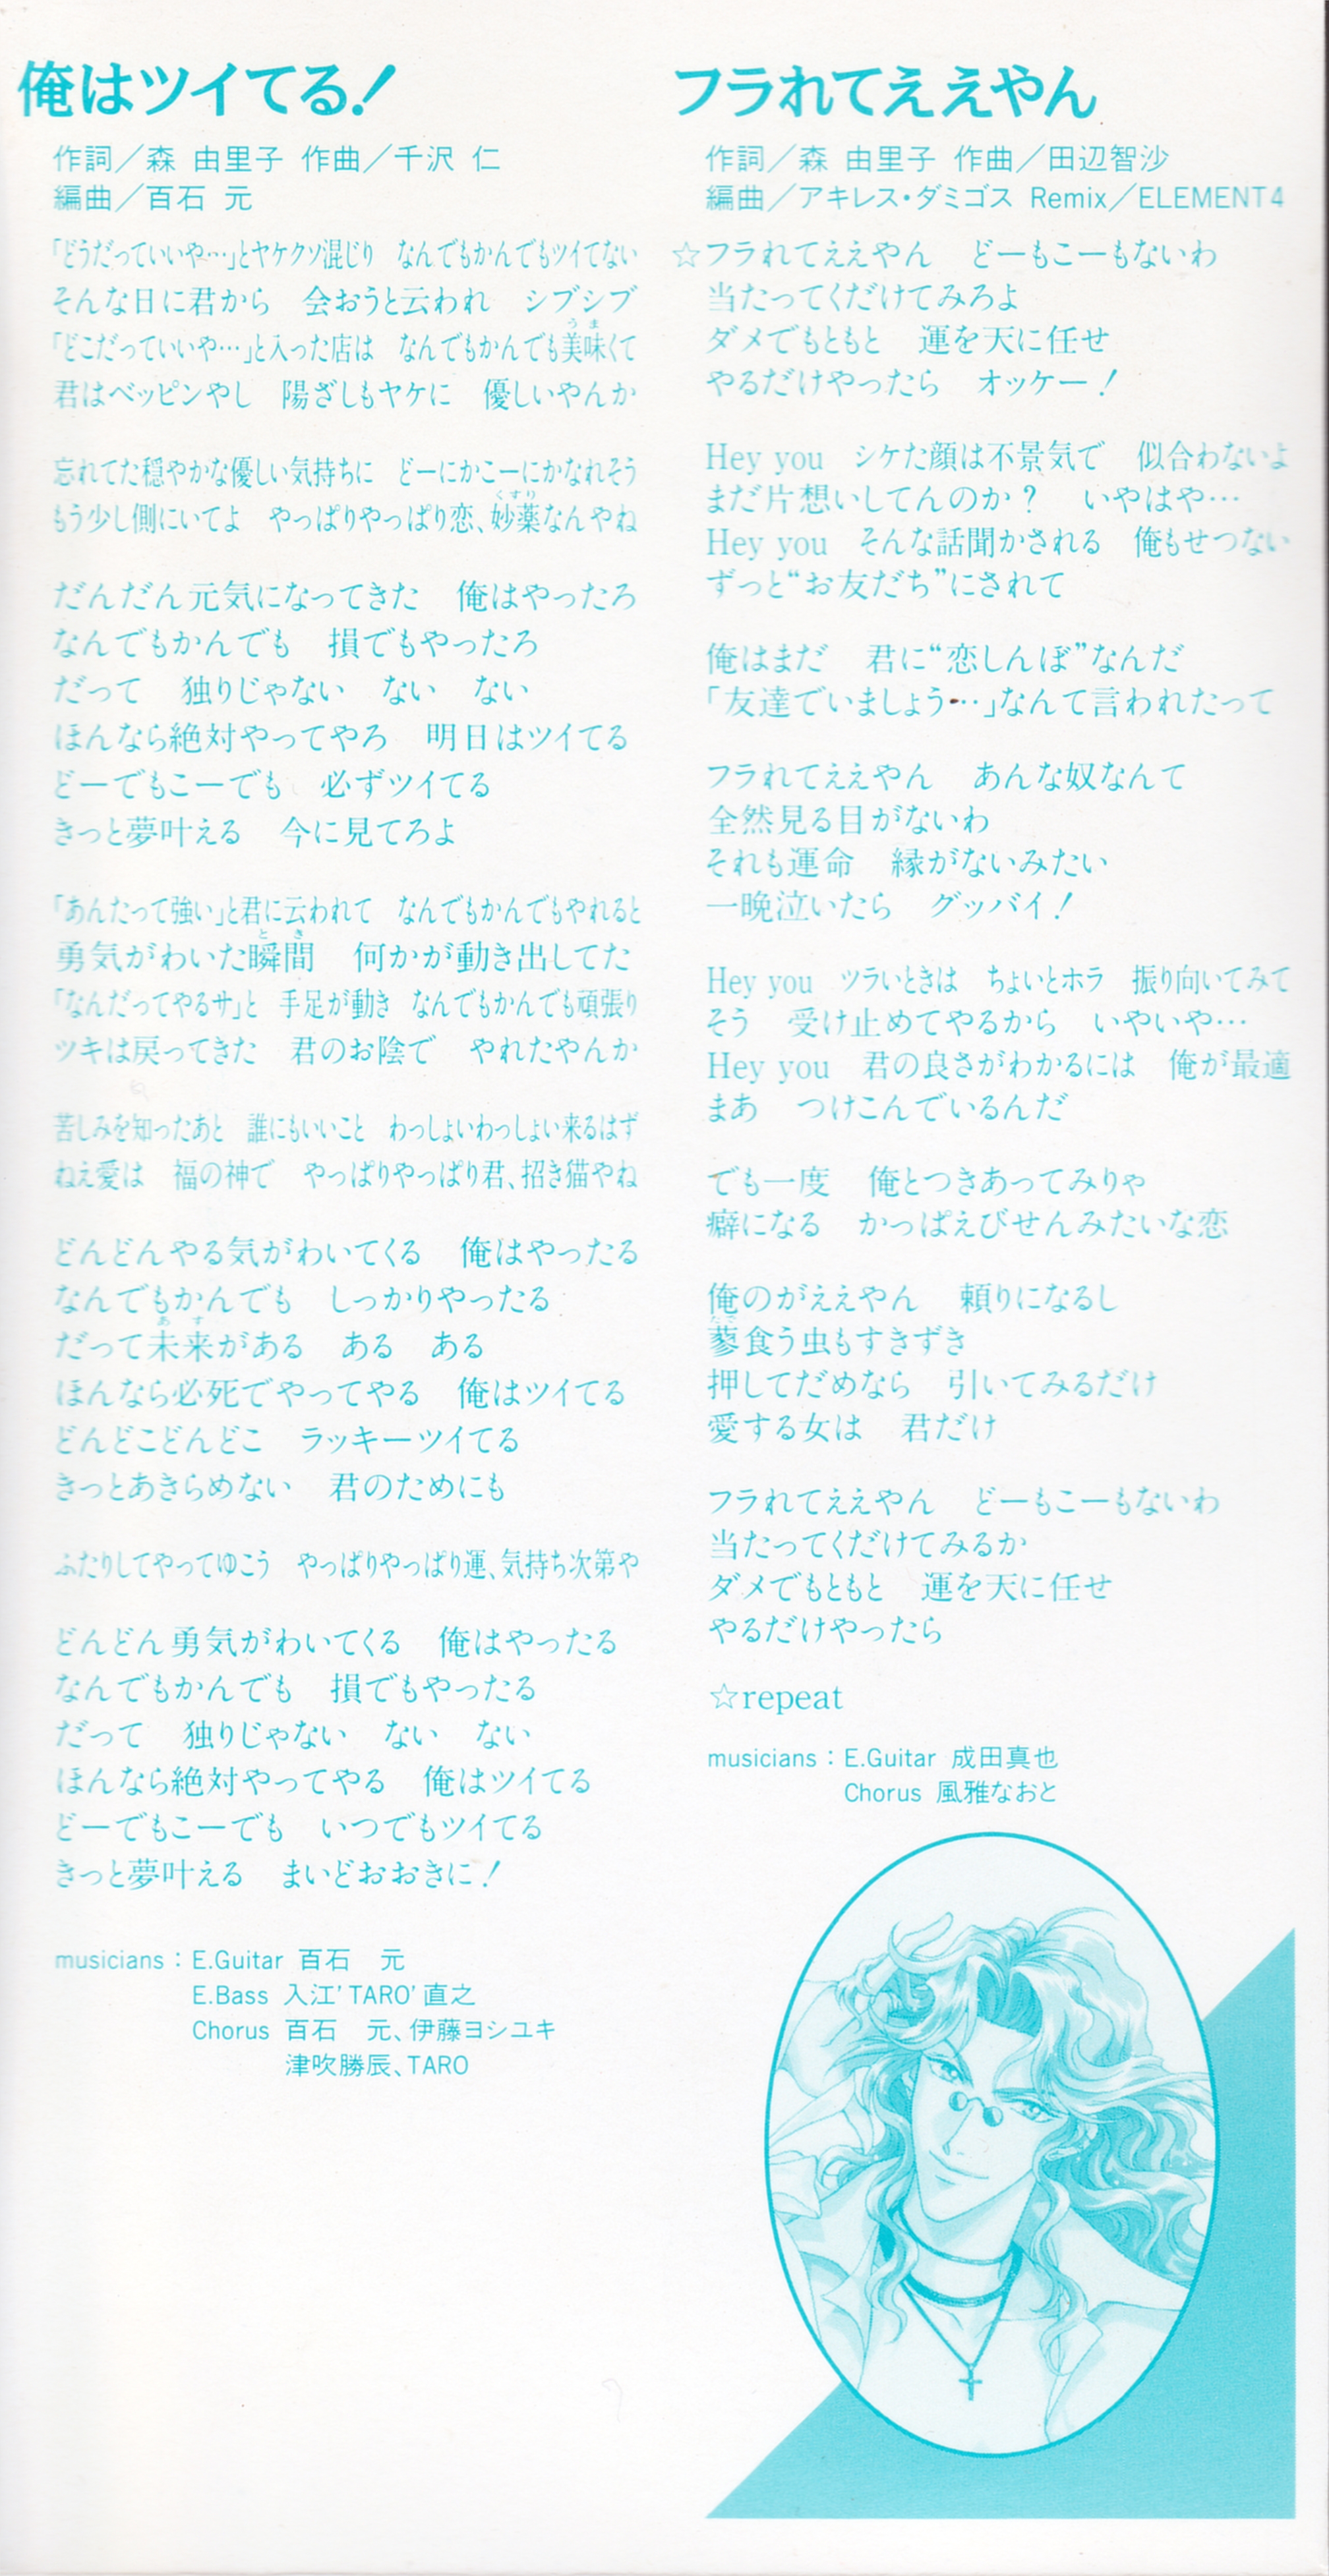 俺はツイてる!
作詞／森 由里子 作曲／千沢 仁
編曲／百石 元
「どうだっていいや…」とヤケクソ混じり なんでもかんでもツイてない
そんな日に君から 会おうと云われ シブシブ
「どこだっていいや…」と入った店は なんでもかんでも美味くて
君はベッピンやし 陽ざしもヤケに 優しいやんか
忘れてた穏やかな優しい気持ちに どーにかこーにかなれそう
もう少し側にいてよ やっぱりやっぱり恋、妙薬なんやね
だんだん元気になってきた 俺はやったろ
なんでもかんでも 損でもやったろ
だって 独りじゃない ない ない
ほんなら絶対やってやろ 明日はツイてる
どーでもこーでも 必ずツイてる
きっと夢叶える 今に見てろよ
「あんたって強い」と君に云われて なんでもかんでもやれると
勇気がわいた瞬間 何かが動き出してた
「なんだってやるサ」と 手足が動き なんでもかんでも頑張り
ツキは戻ってきた 君のお陰で やれたやんか
苦しみを知ったあと 誰にもいいこと わっしょいわっしょい来るはず
ねえ愛は 福の神で やっぱりやっぱり君、招き猫やね
どんどんやる気がわいてくる 俺はやったる
なんでもかんでも しっかりやったる
だって未来がある ある ある
ほんなら必死でやってやる 俺はツイてる
どんどこどんどこ ラッキーツイてる
きっとあきらめない 君のためにも
ふたりしてやってゆこう やっぱりやっぱり運、気持ち次第や
どんどん勇気がわいてくる 俺はやったる
なんでもかんでも 損でもやったる
だって 独りじゃない ない ない
ほんなら絶対やってやる 俺はツイてる
どーでもこーでも いつでもツイてる
きっと夢叶える まいどおおきに!
musicians：E.Guitar 百石 元
E.Bass 入江'TARO'直之
Chorus 百石 元、伊藤ヨシユキ
津吹勝辰、TARO
フラれてええやん
作詞／森 由里子 作曲／田辺智沙
編曲／アキレス・ダミゴス Remix／ELEMENT4
☆フラれてええやん どーもこーもないわ
当たってくだけてみろよ
ダメでもともと 運を天に任せ
やるだけやったら オッケー!
Hey you シケた顔は不景気で 似合わないよ
まだ片想いしてんのか? いやはや…
Hey you そんな話聞かされる 俺もせつない
ずっと“お友だち”にされて
俺はまだ 君に“恋しんぼ”なんだ
「友達でいましょう…」なんて言われたって
フラれてええやん あんな奴なんて
全然見る目がないわ
それも運命 縁がないみたい
一晩泣いたら グッバイ!
Hey you ツラいときは ちょいとホラ 振り向いてみて
そう 受け止めてやるから いやいや…
Hey you 君の良さがわかるには 俺が最適
まあ つけこんでいるんだ
でも一度 俺とつきあってみりゃ
癖になる かっぱえびせんみたいな恋
俺のがええやん 頼りになるし
蓼食う虫もすきずき
押してだめなら 引いてみるだけ
愛する女は 君だけ
フラれてええやん どーもこーもないわ
当たってくだけてみるか
ダメでもともと 運を天に任せ
やるだけやったら
☆repeat
musicians：E.Guitar 成田真也
Chorus 風雅なおと